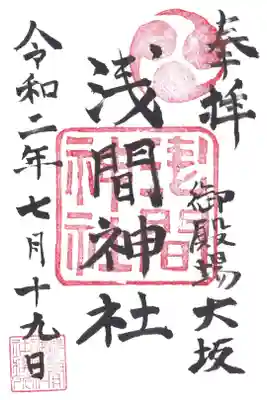 奉拝
御殿場大坂
浅間神社
令和二年七月十九日
浅間神社